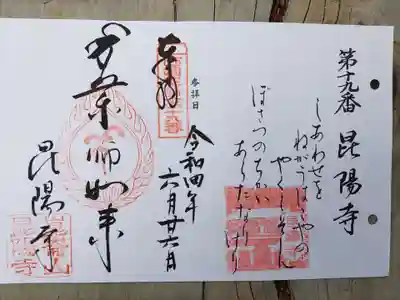 第十九番 昆陽寺
しあわせを
ねがうはゝやの
やくしそん
ぼさつのちかい
あらたなりけり
参拝日
令和四年
六月廿六月
奉拝
薬師如来
昆陽寺